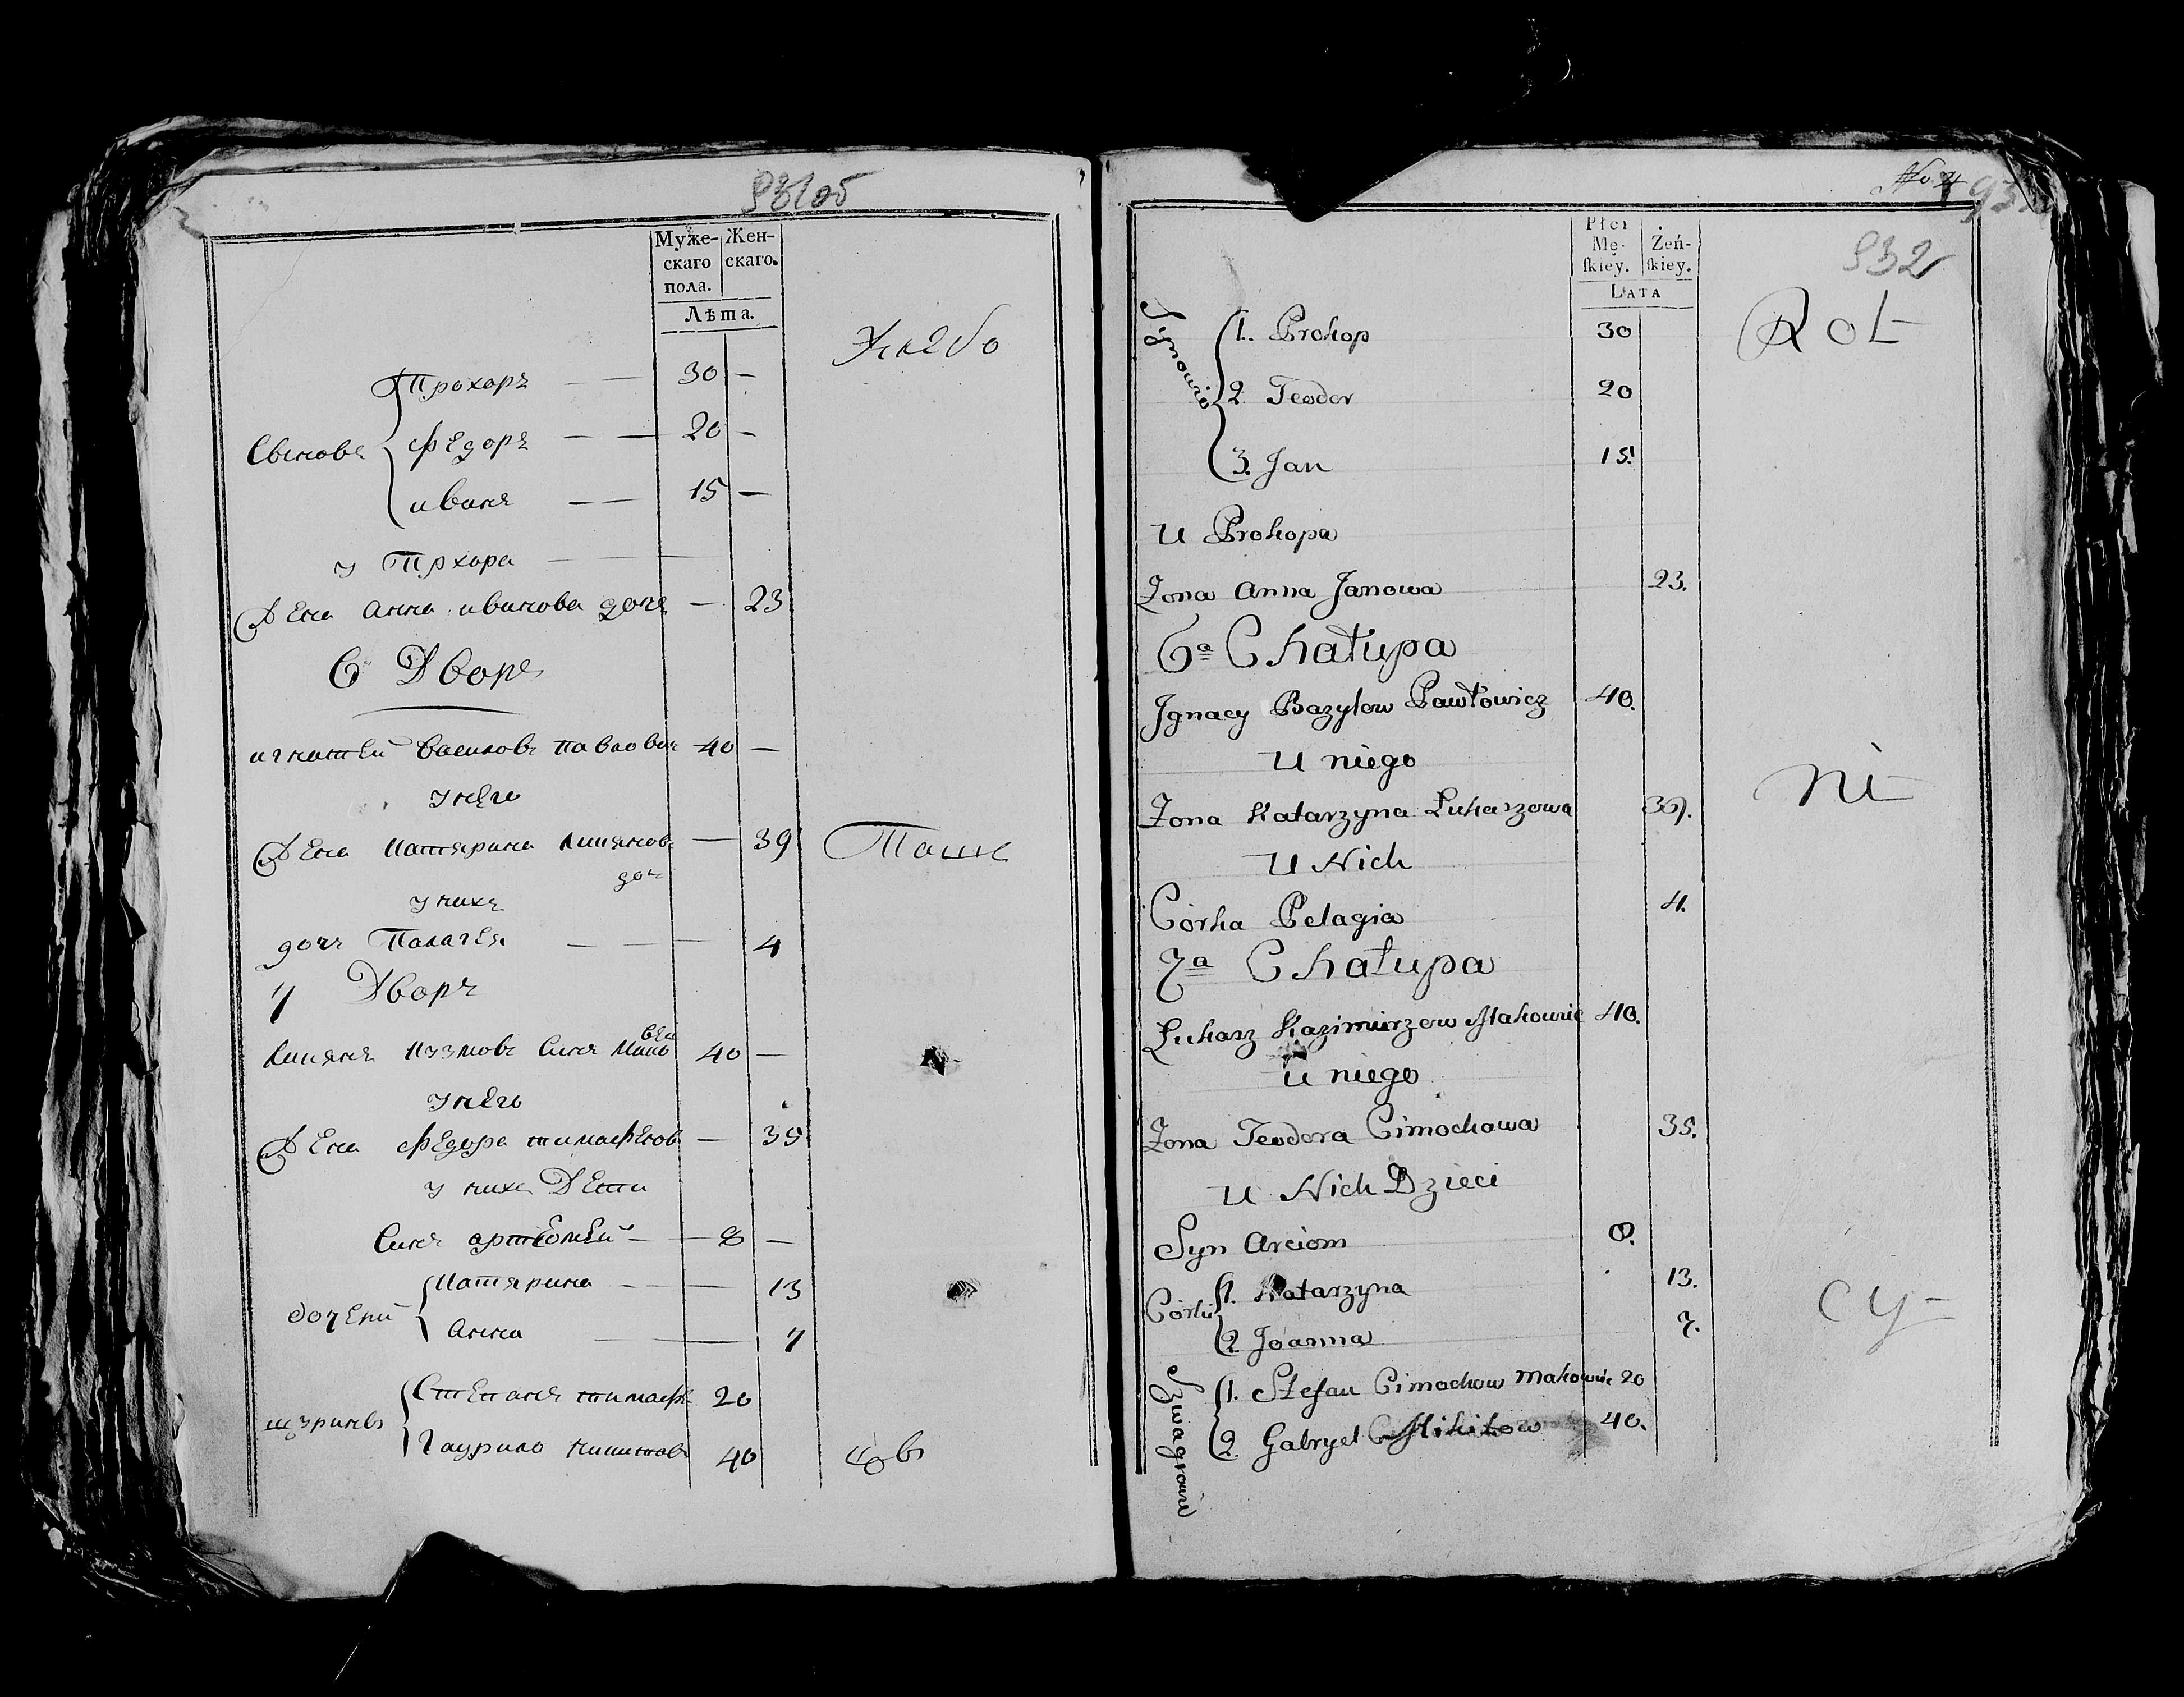 931об
Муже-
скаго
пола.
Жен-
скаго.
Лѣта.
Прохоръ — — 30 —
Сынове
Федоръ — — 20 —
иванъ — — 15 —
у Прхора
Жена анна иванова дочь — 23
6 Дворъ
игнатей Василовъ павлович 40 —
у него
Жена Катярина лукянов — 39
доч
у нихъ
дочъ Палагея — 4
7 Дворъ
лукянъ Кузмовъ Синъ Мако 40 —
вец
у него
Жена федора тимофеюв — 35
у нихъ Дети
Синъ артеомей — — 8 —
дочеки
Катярина — — 13
Анна — — 7
щуринъ
Степанъ тимофе 20
Гаурило никитовъ 40
Таше
932
Płci
Mę-
ſkiey.
Żeń-
ſkiey.
Lata
Synowie
1. Prokop 30
2. Teodor 20
3. Jan 15.
U Prokopa
Zona Anna Janowa 23.
6a Chałupa
Jgnacy Bazylow Pawłowicz 40.
U niego
Zona Katarzyna Łukaszowa 39.
U Nich
Corka Pelagia 4.
7a Chałupa
Łukasz Kazimirzow Makowic 40.
U niego
Zona Teodora Cimochowa 35.
U Nich Dzieci
Syn Arciom 8.
Corki
1. Katarzyna 13.
2. Joanna 7.
Szwagrowie
1. Stefan Cimochow Makowic 20
2. Gabryel Mikitow 40.
Rot
ni
су